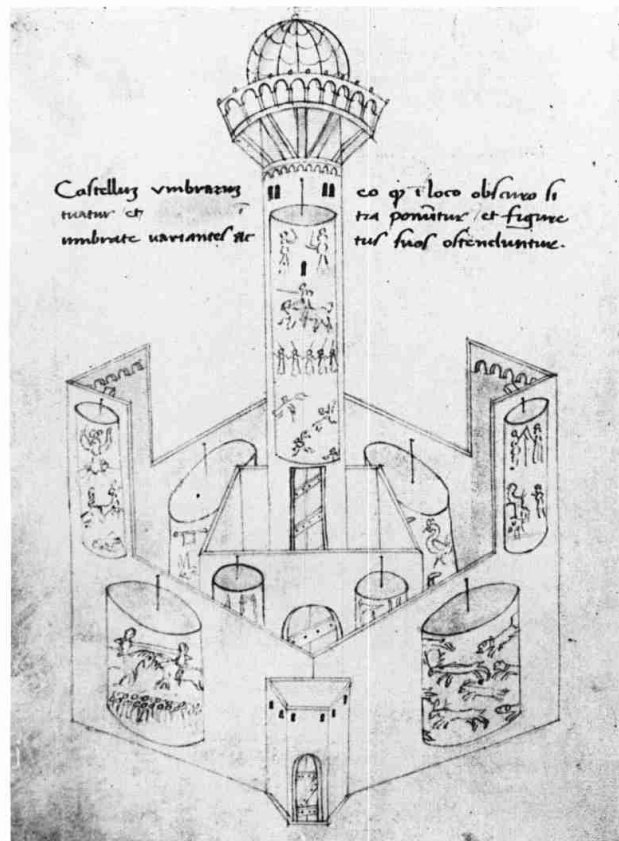 Castelluz vmbrarum eo qꝫ ī loco obscuro si
tuatur et ī tra ponūtur et figure
umbrate variantes ac tus suos ostenduntur.